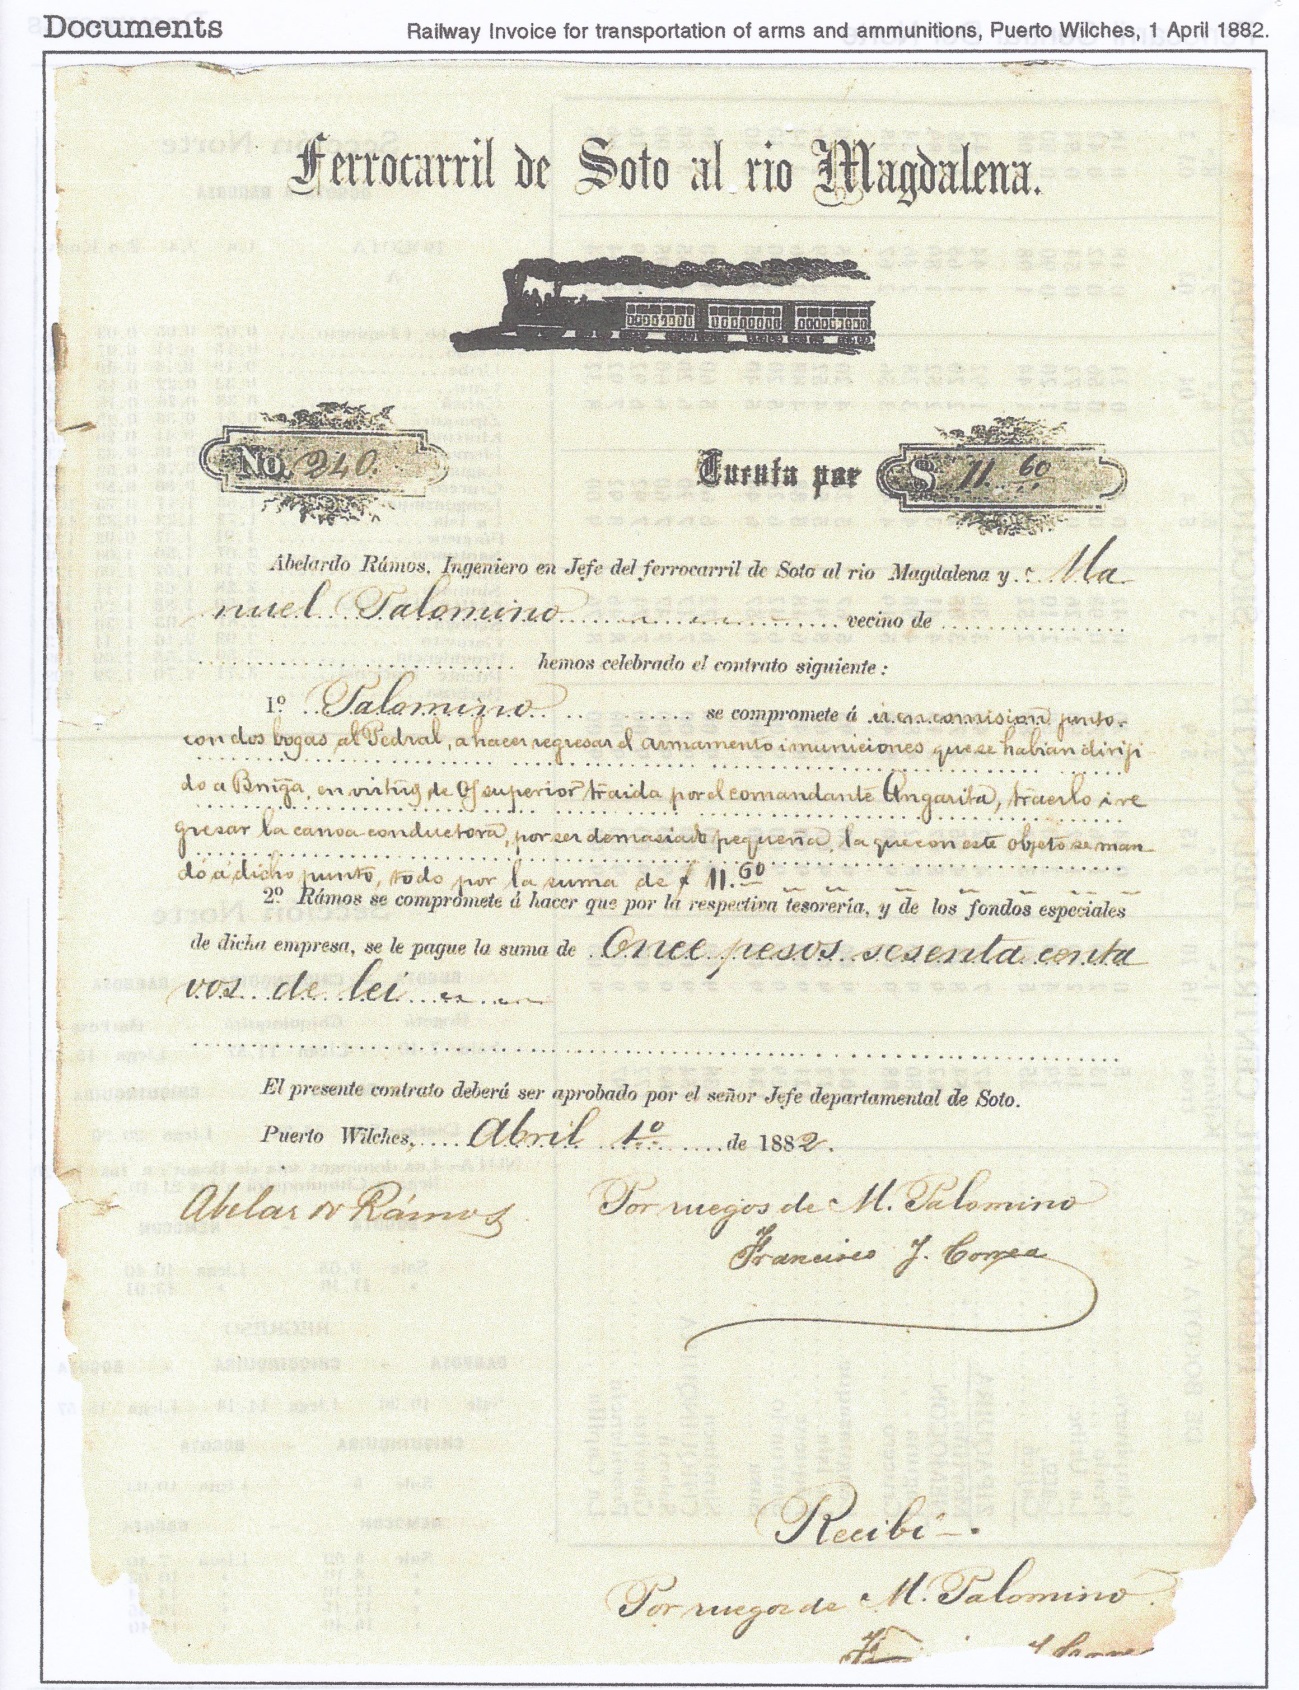 Documents
Railway Invoice for transportation of arms and ammunitions, Puerto Wilches, 1 April 1882.
Ferrocarril de Soto al rio Magdalena.
No. 240.
Cuenta por $ 11.60
Abelardo Rámos, Ingeniero en Jefe del ferrocarril de Soto al rio Magdalena y Ma
nuel Palomino vecino de
hemos celebrado el contrato siguiente:
1º Palomino se compromete á ir en comision junto
con dos bogas al Pedral, a hacer regresar el armamento i municiones que se habian diriji
do a Bmga, en virtud de Of superior traida por el comandante Angarita, traerlo i re
gresar la canoa conductora, por ser demasiado pequeña, la que con este objeto se man
dó á dicho punto, todo por la suma de $ 11.60
2º Rámos se compromete á hacer que por la respectiva tesorería, y de los fondos especiales
de dicha empresa, se le pague la suma de Once pesos sesenta centa
vos de lei
El presente contrato deberá ser aprobado por el señor Jefe departamental de Soto.
Puerto Wilches, Abril 1º de 1882.
Abelardo Rámos
Por ruegos de M. Palomino
Francisco J. Correa
Recibí
Por ruegos de M. Palomino